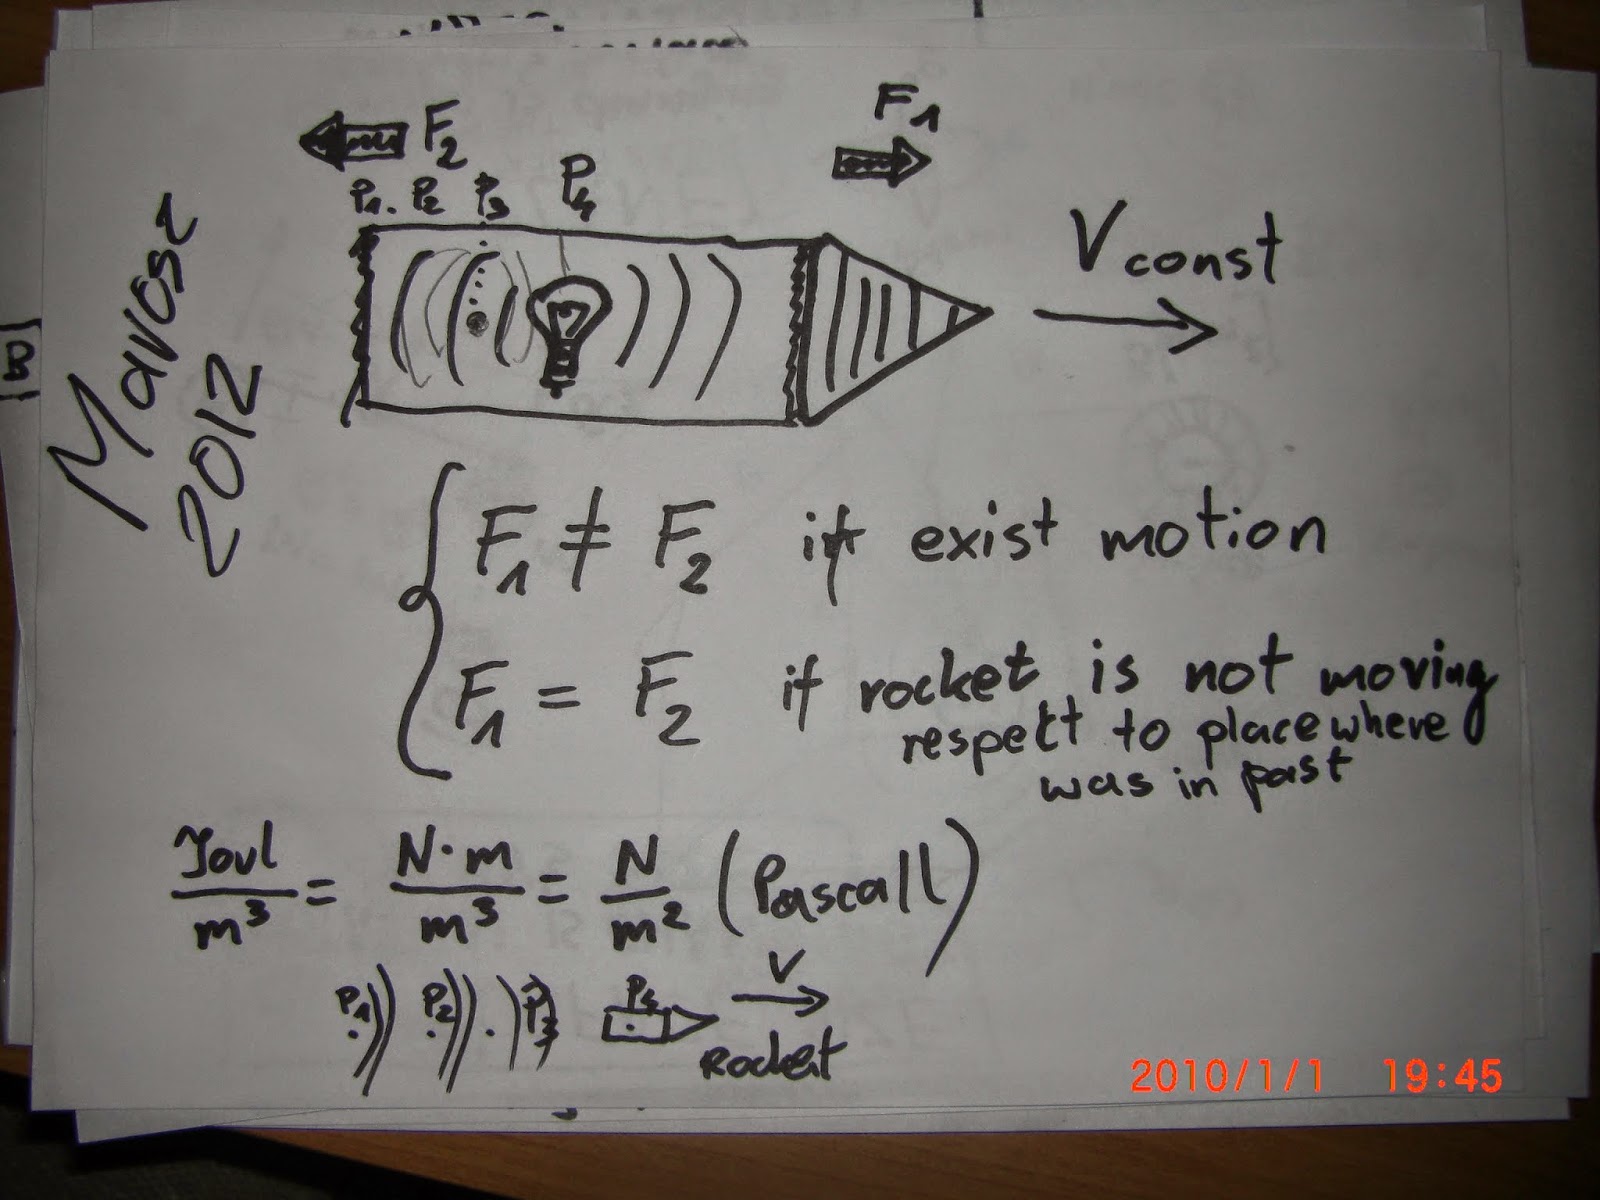 F2
F1
P1. P2 P3 P4
Vconst
Marosz
2012
F1 ≠ F2 if exist motion
F1 = F2 if rocket is not moving
respekt to place where
was in past
Joul/m³ = N·m/m³ = N/m² (Pascall)
P1 P2 P3 P4 V
Rocket
B
2010/1/1 19:45